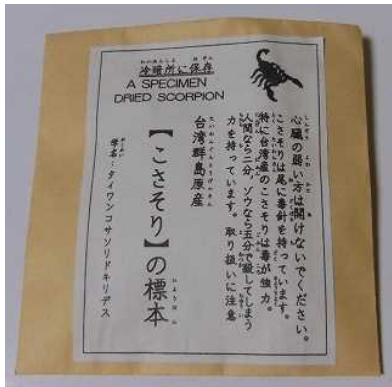 冷暗所に保存
A SPECIMEN
DRIED SCORPION
心臓の弱い方は開けないでください。
こさそりは尾に毒針を持っています。
特に台湾産のこさそりは毒が強力。
人間なら二分、ゾウなら五分で殺してしまう
力を持っています。取り扱いに注意
台湾群島原産
【こさそり】の標本
学名:タイワンコサソリドキリデス